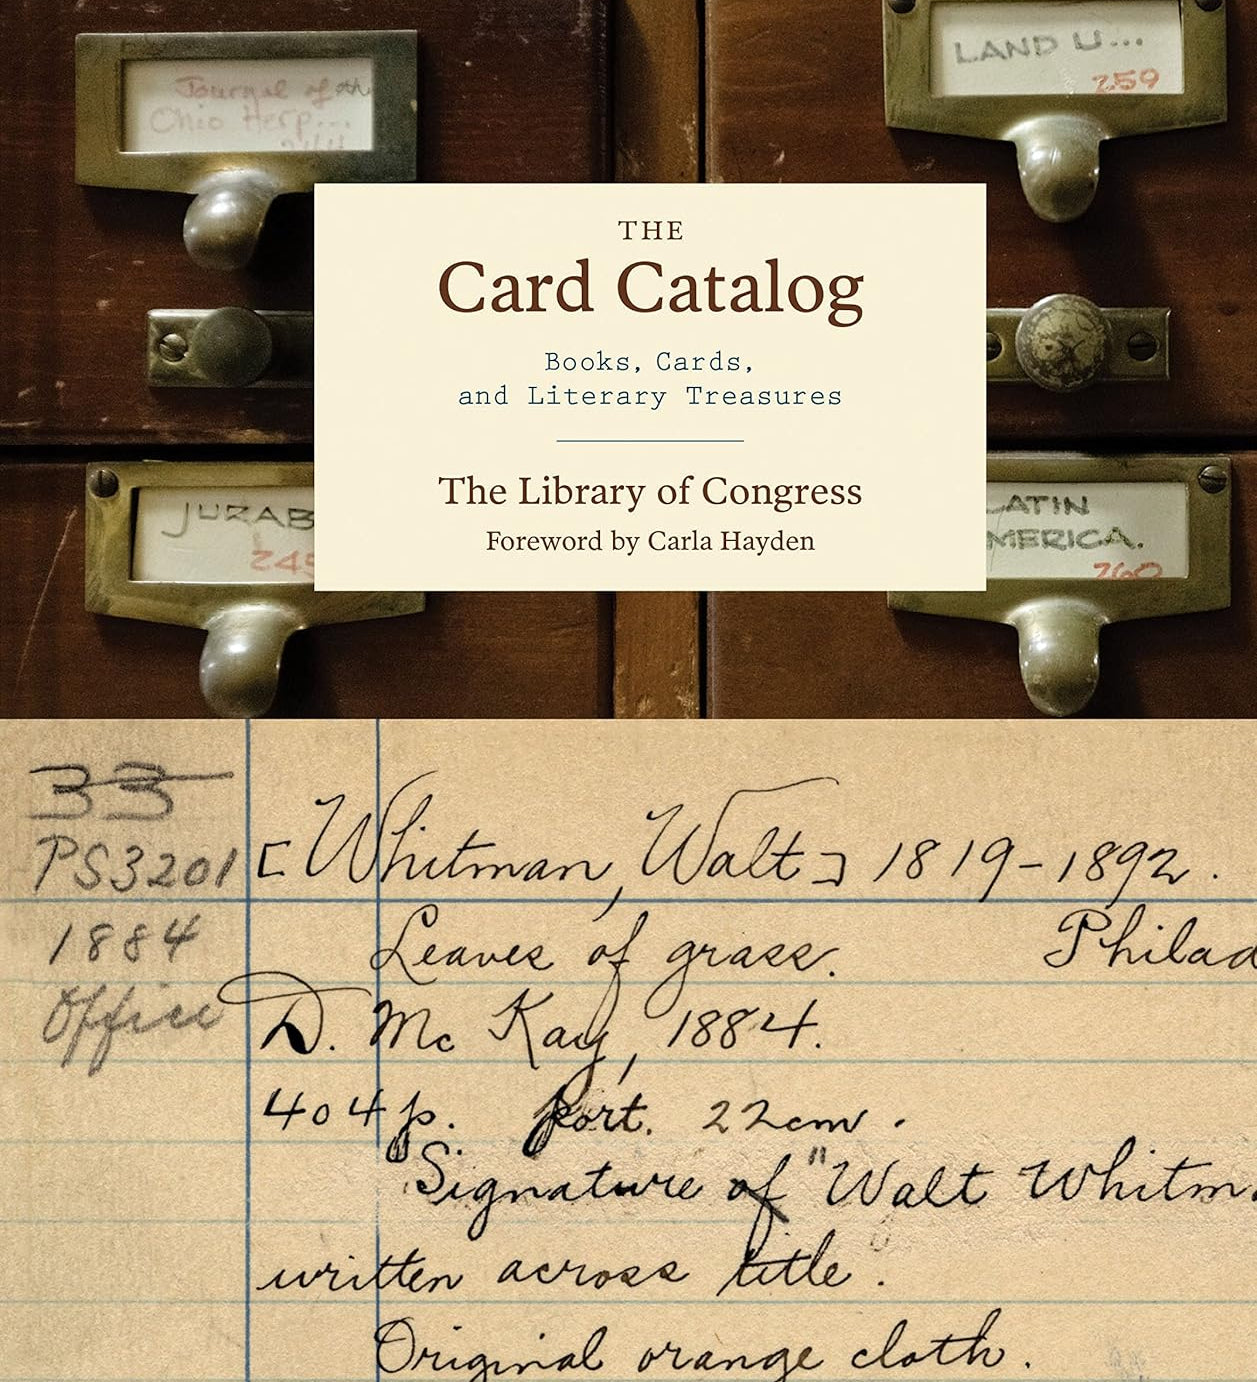 Journal of the
Ohio Herp...
LAND U...
259
THE
Card Catalog
Books, Cards,
and Literary Treasures
The Library of Congress
Foreword by Carla Hayden
JURAB
245
LATIN
AMERICA.
260
33
PS3201 [Whitman, Walt] 1819-1892.
1884 Leaves of grass. Philad
Office D. McKay, 1884.
404 p. port. 22cm.
"Signature of "Walt Whitm
written across title.
Original orange cloth.